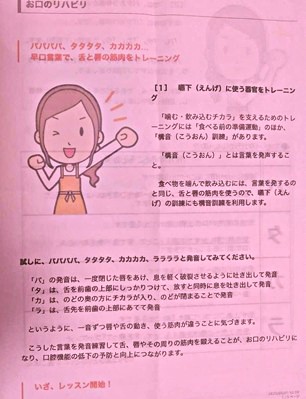 お口のリハビリ
パパパパ、タタタタ、カカカカ…
早口言葉で、舌と唇の筋肉をトレーニング
【1】 嚥下（えんげ）に使う器官をトレーニング
「噛む・飲み込むチカラ」を支えるためのトレーニングには「食べる前の準備運動」のほか、「構音（こうおん）訓練」があります。
「構音（こうおん）」とは言葉を発声すること。
食べ物を噛んで飲み込むには、言葉を発するのと同じ、舌と唇の筋肉を使うので、嚥下（えんげ）の訓練にも構音訓練を利用します。
試しに、パパパパ、タタタタ、カカカカ、ララララと発音してみてください。
「パ」の発音は、一度閉じた唇をあけ、息を軽く破裂させるように吐き出して発音
「タ」は、舌を前歯の上部にしっかりつけて、放すと同時に息を吐き出して発音
「カ」は、のどの奥の方にチカラが入り、のどが閉まることで発音
「ラ」は舌先を前歯の上部にあてて発音
というように、一音ずつ唇や舌の動き、使う筋肉が違うことに気づきます。
こうした言葉を発音練習して舌、唇やその周りの筋肉を鍛えることが、お口のリハビリになり、口腔機能の低下の予防と向上につながります。
いざ、レッスン開始！